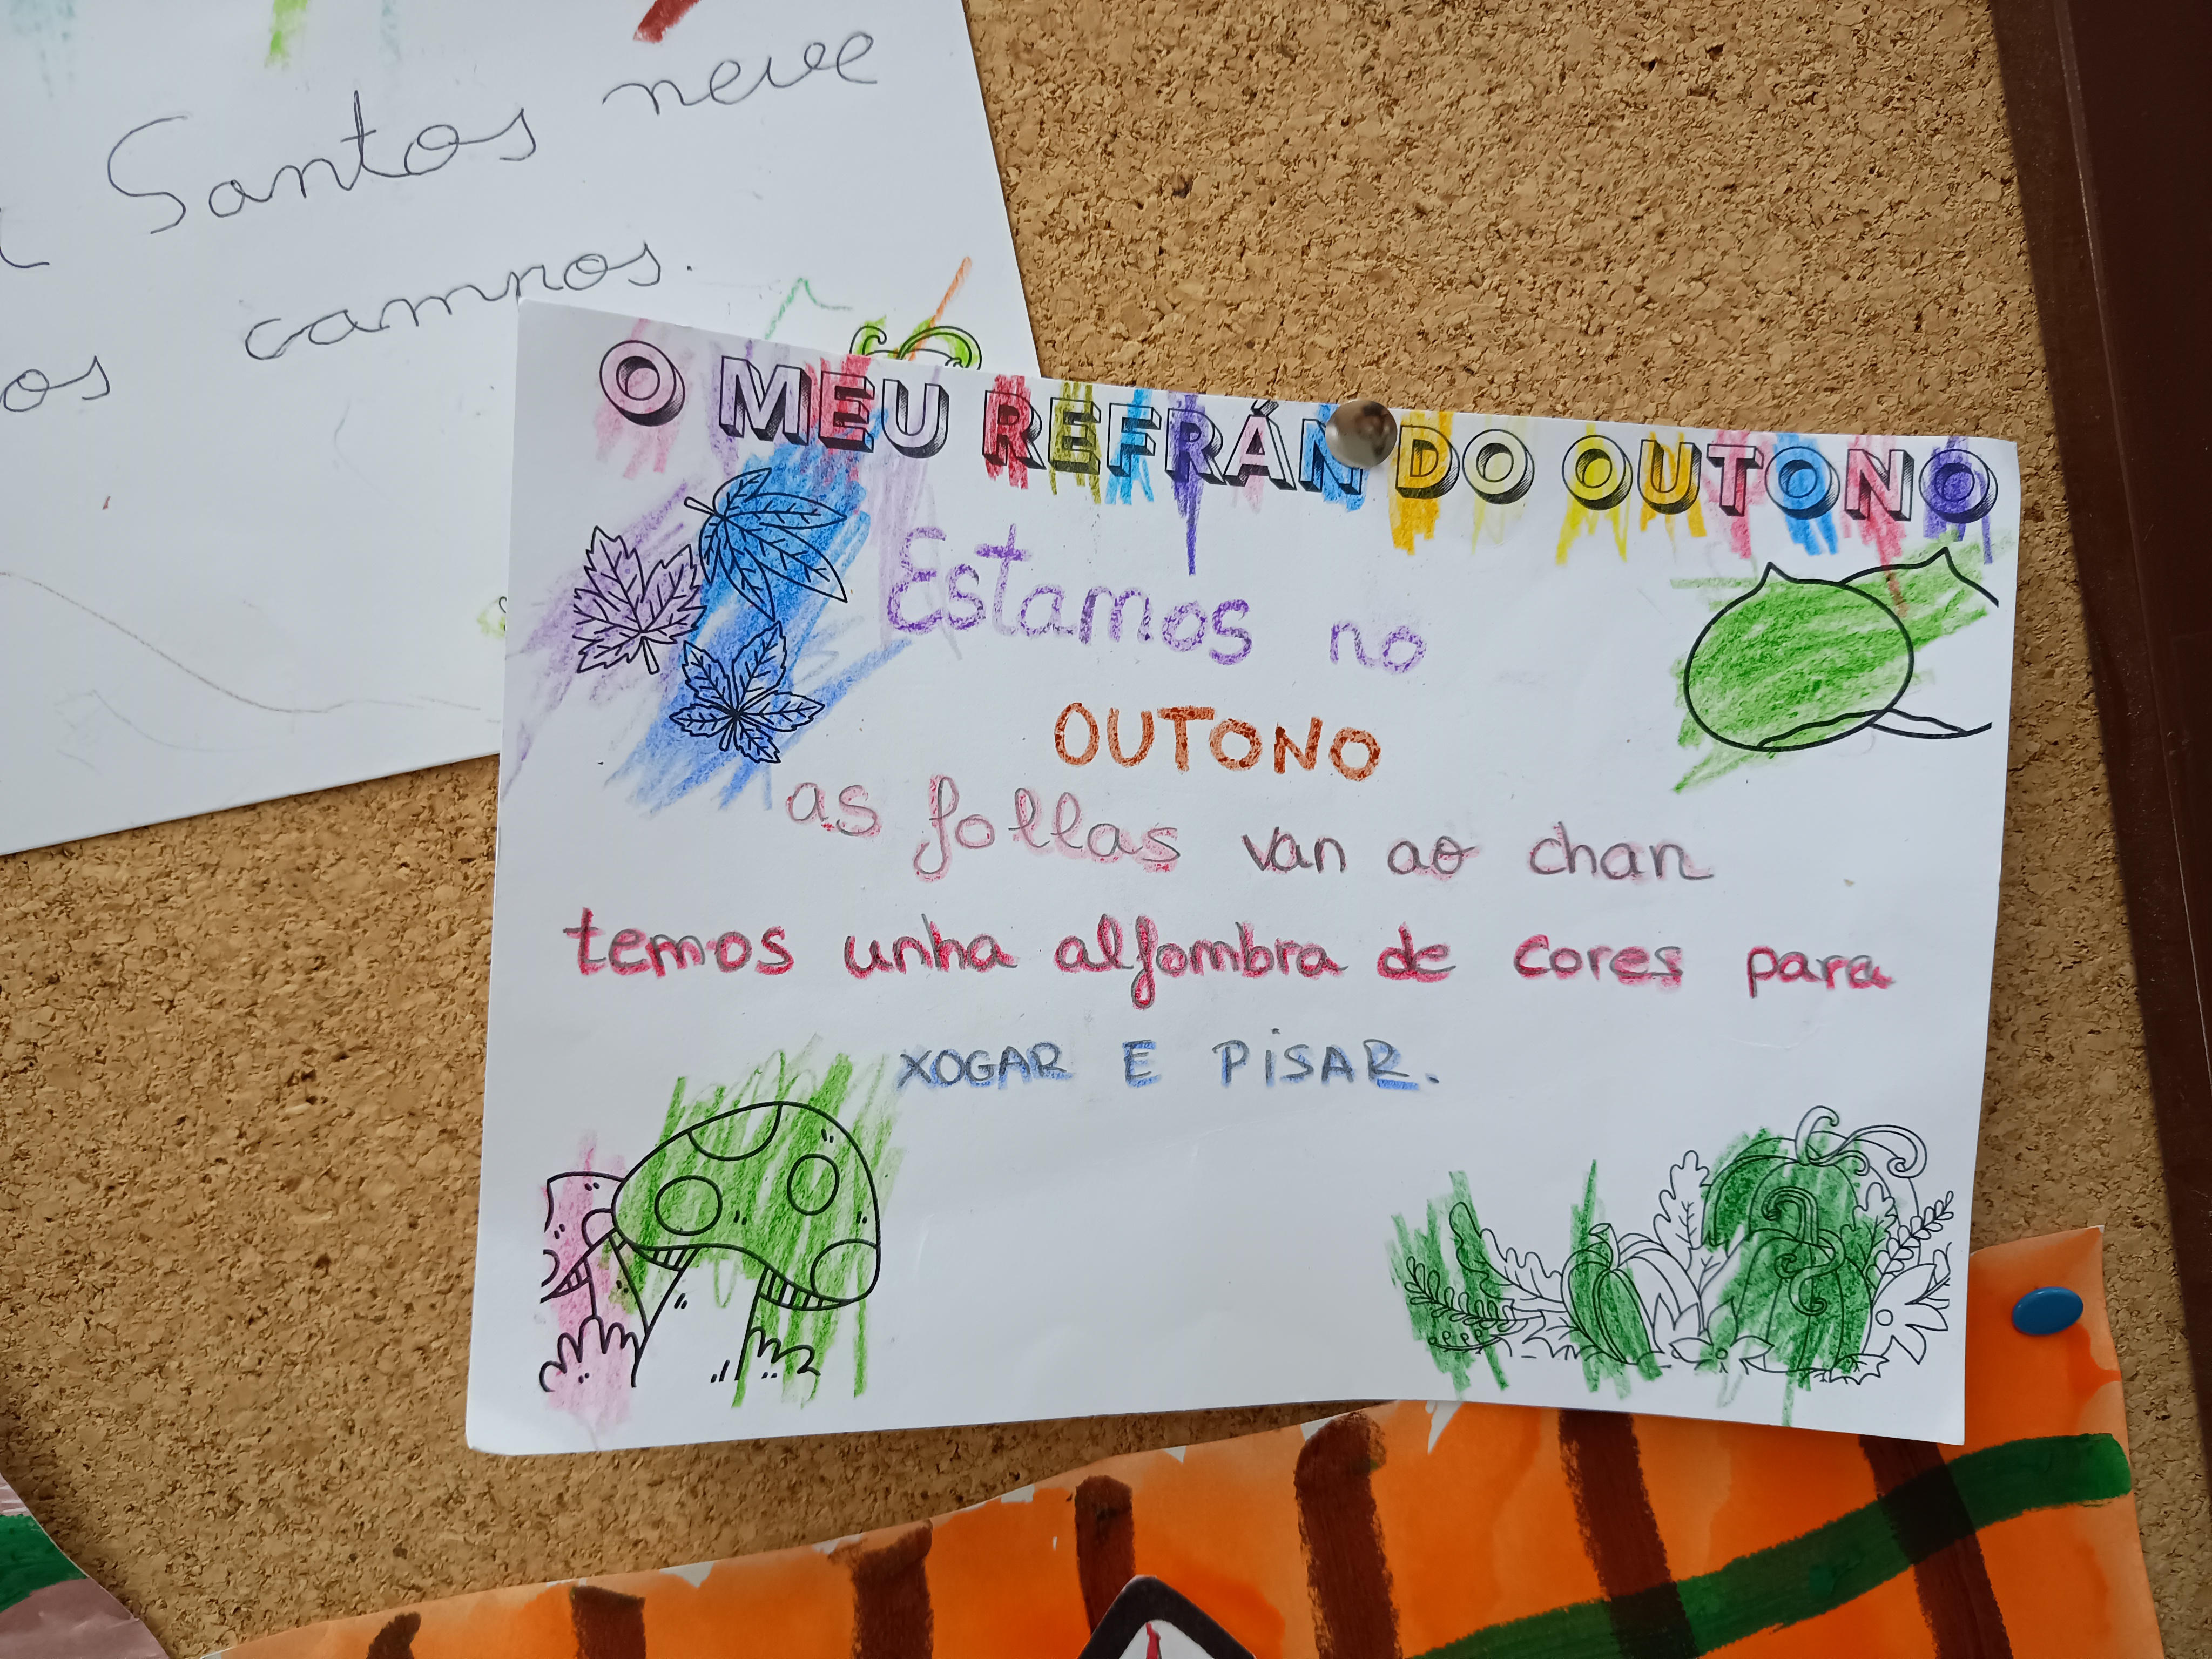 Santos neve
os campos.
O MEU REFRÁN DO OUTONO
Estamos no
OUTONO
as follas van ao chan
temos unha alfombra de cores para
XOGAR E PISAR.